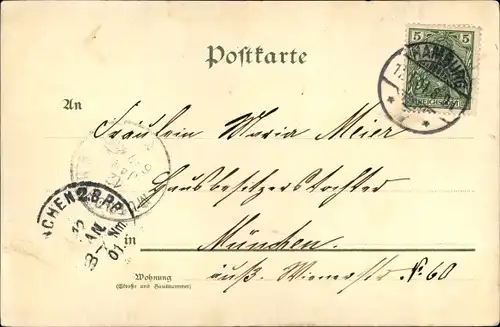 Postkarte
5
HAMBURG
An
Fräulein Maria Meier
Hausbesitzerstochter
in München.
Wohnung
(Straße und Hausnummer)
äuß. Wienerstr. No. 60